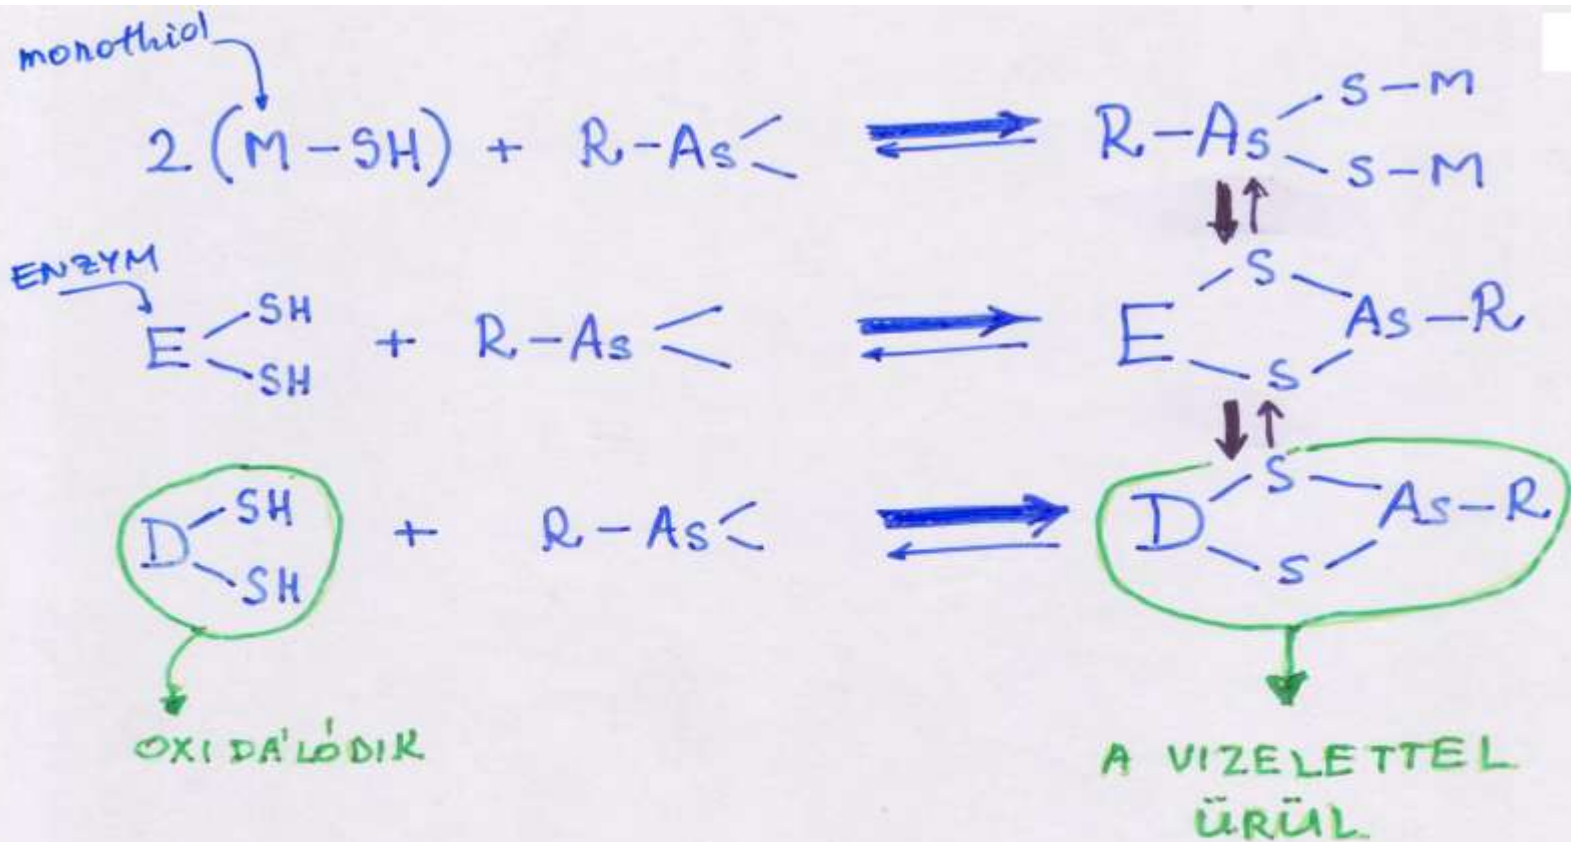 monothiol
2 (M-SH) + R-As ⇌ R-As
S-M
S-M
ENZYM
E
SH
SH
+ R-As ⇌ E
S
S
As-R
D
SH
SH
+ R-As ⇌ D
S
S
As-R
OXIDÁLÓDIK
A VIZELETTEL
ÜRÜL